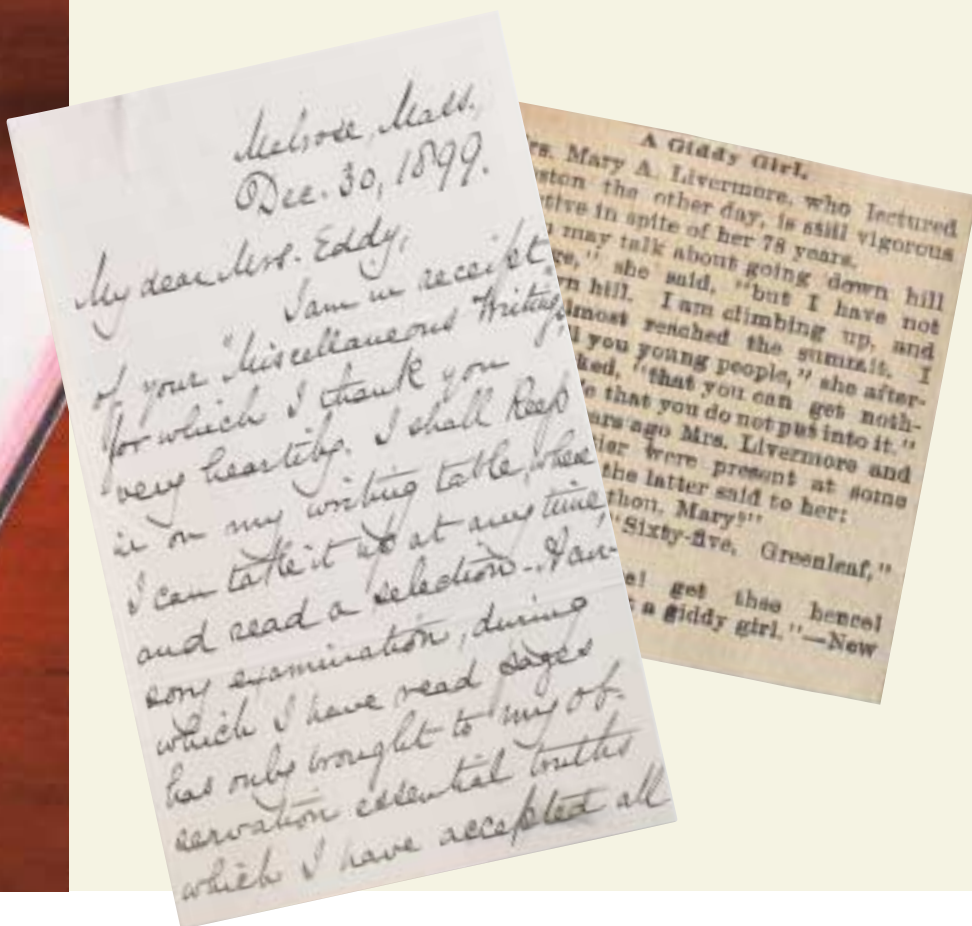 Melrose, Mass.,
Dec. 30, 1899.
My dear Mrs. Eddy,
I am in receipt
of your "Miscellaneous Writings,"
for which I thank you
very heartily. I shall keep
it on my writing table, where
I can take it up at any time,
and read a selection. A cur-
sory examination, during
which I have read pages
has only brought to my ob-
servation essential truths
which I have accepted all
A Giddy Girl.
rs. Mary A. Livermore, who lectured
ston the other day, is still vigorous
tive in spite of her 78 years.
may talk about going down hill
re," she said, "but I have not
n hill. I am climbing up, and
lmost reached the summit. I
ll you young people," she after-
ked, "that you can get noth-
e that you do not put into it."
ars ago Mrs. Livermore and
ier were present at some
the latter said to her:
thou, Mary?"
"Sixty-five, Greenleaf,"
e! get thee hence!
t a giddy girl."—New